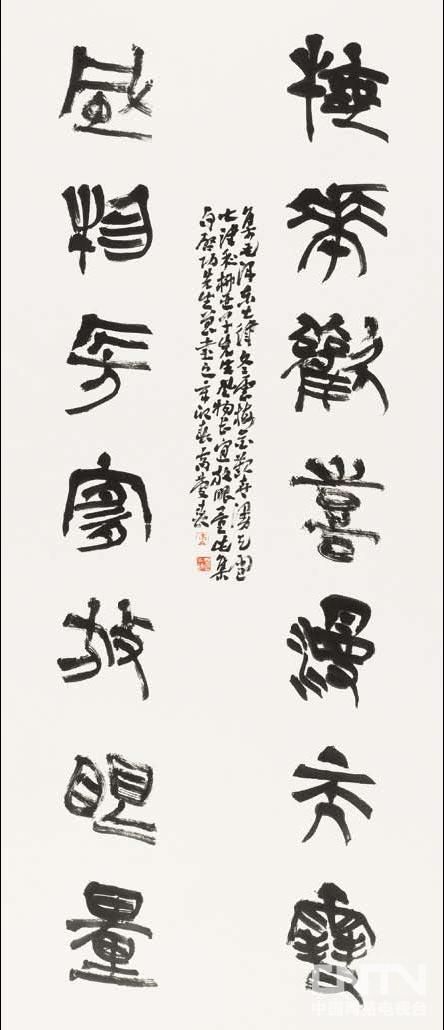 梅花歡喜漫天雪
集毛澤東七律冬雲梅花歡喜漫天雪
七律和柳亞子先生風物長宜放眼量此集
句啟功先生曾書之辛卯春高慶春
風物長宜放眼量
CNTV
中国网络电视台